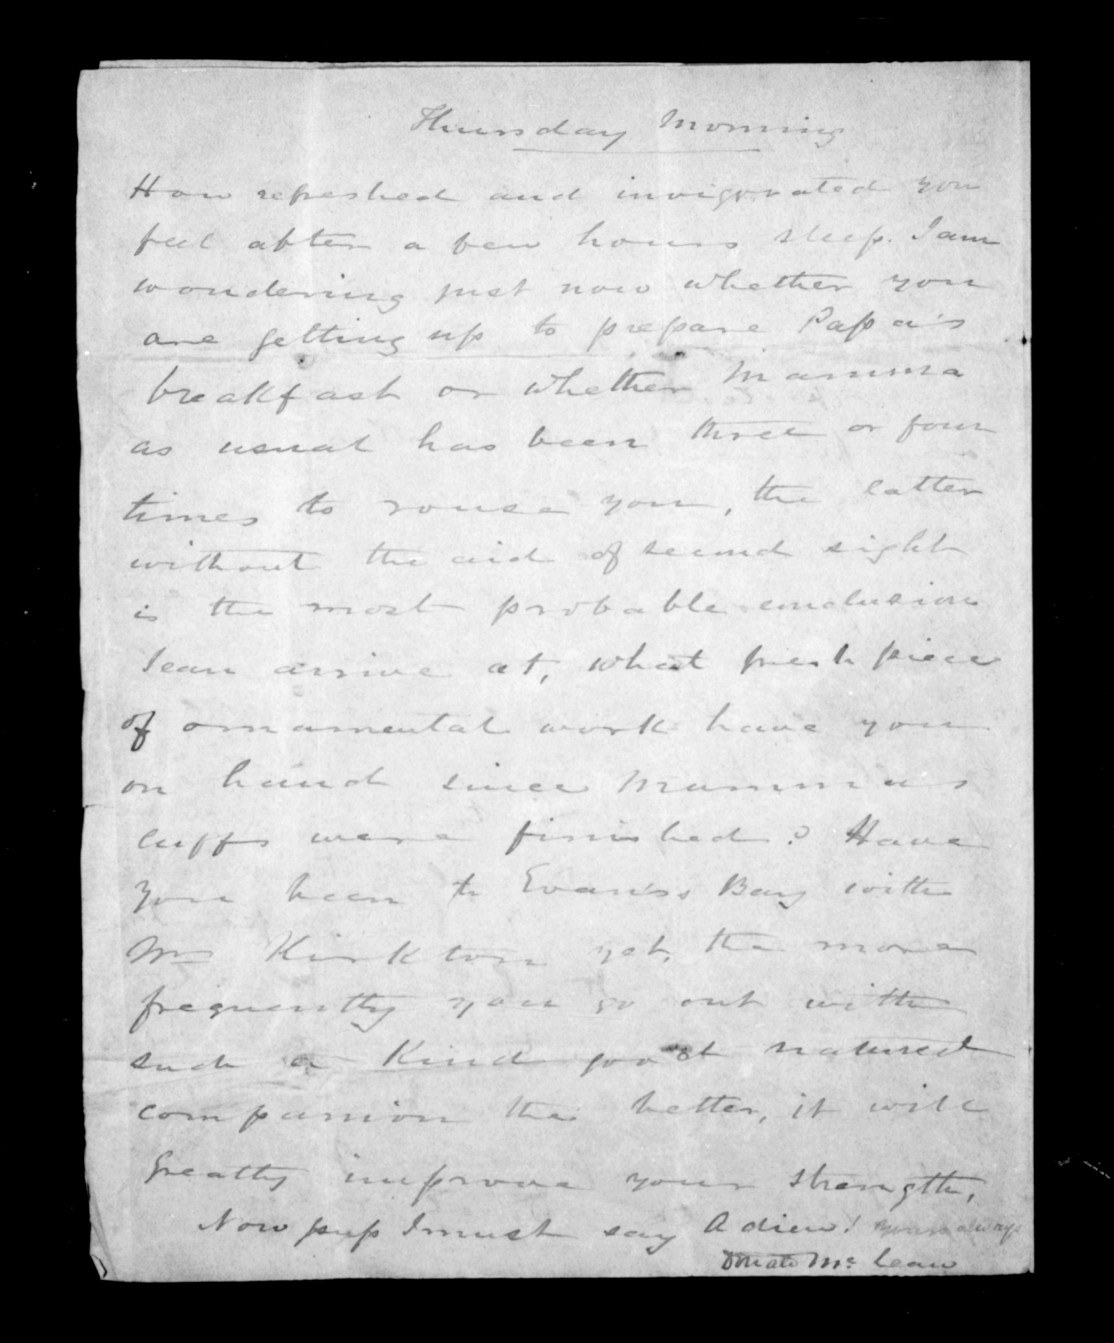 Thursday Morning
How refreshed and invigorated you
feel after a few hours sleep. I am
wondering just now whether you
are getting up to prepare Papa's
breakfast or whether Mamma
as usual has been three or four
times to rouse you, the latter
without the aid of second sight
is the most probable conclusion
I can arrive at, what fresh piece
of ornamental work have you
on hand since Mamma's
cuffs were finished? Have
you been to Evans's Bay with
Mrs Kirkton yet, the more
frequently you go out with
such a kind good natured
companion the better, it will
greatly improve your strength,
Now I must say Adieu! yours always
Donald McLean